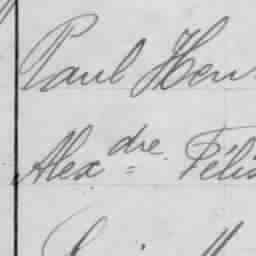 Paul Hen
Alexdre Féli